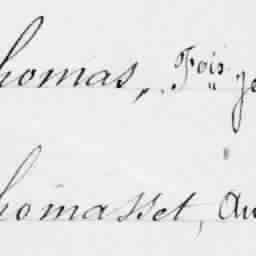 homas, Fois
homasset,